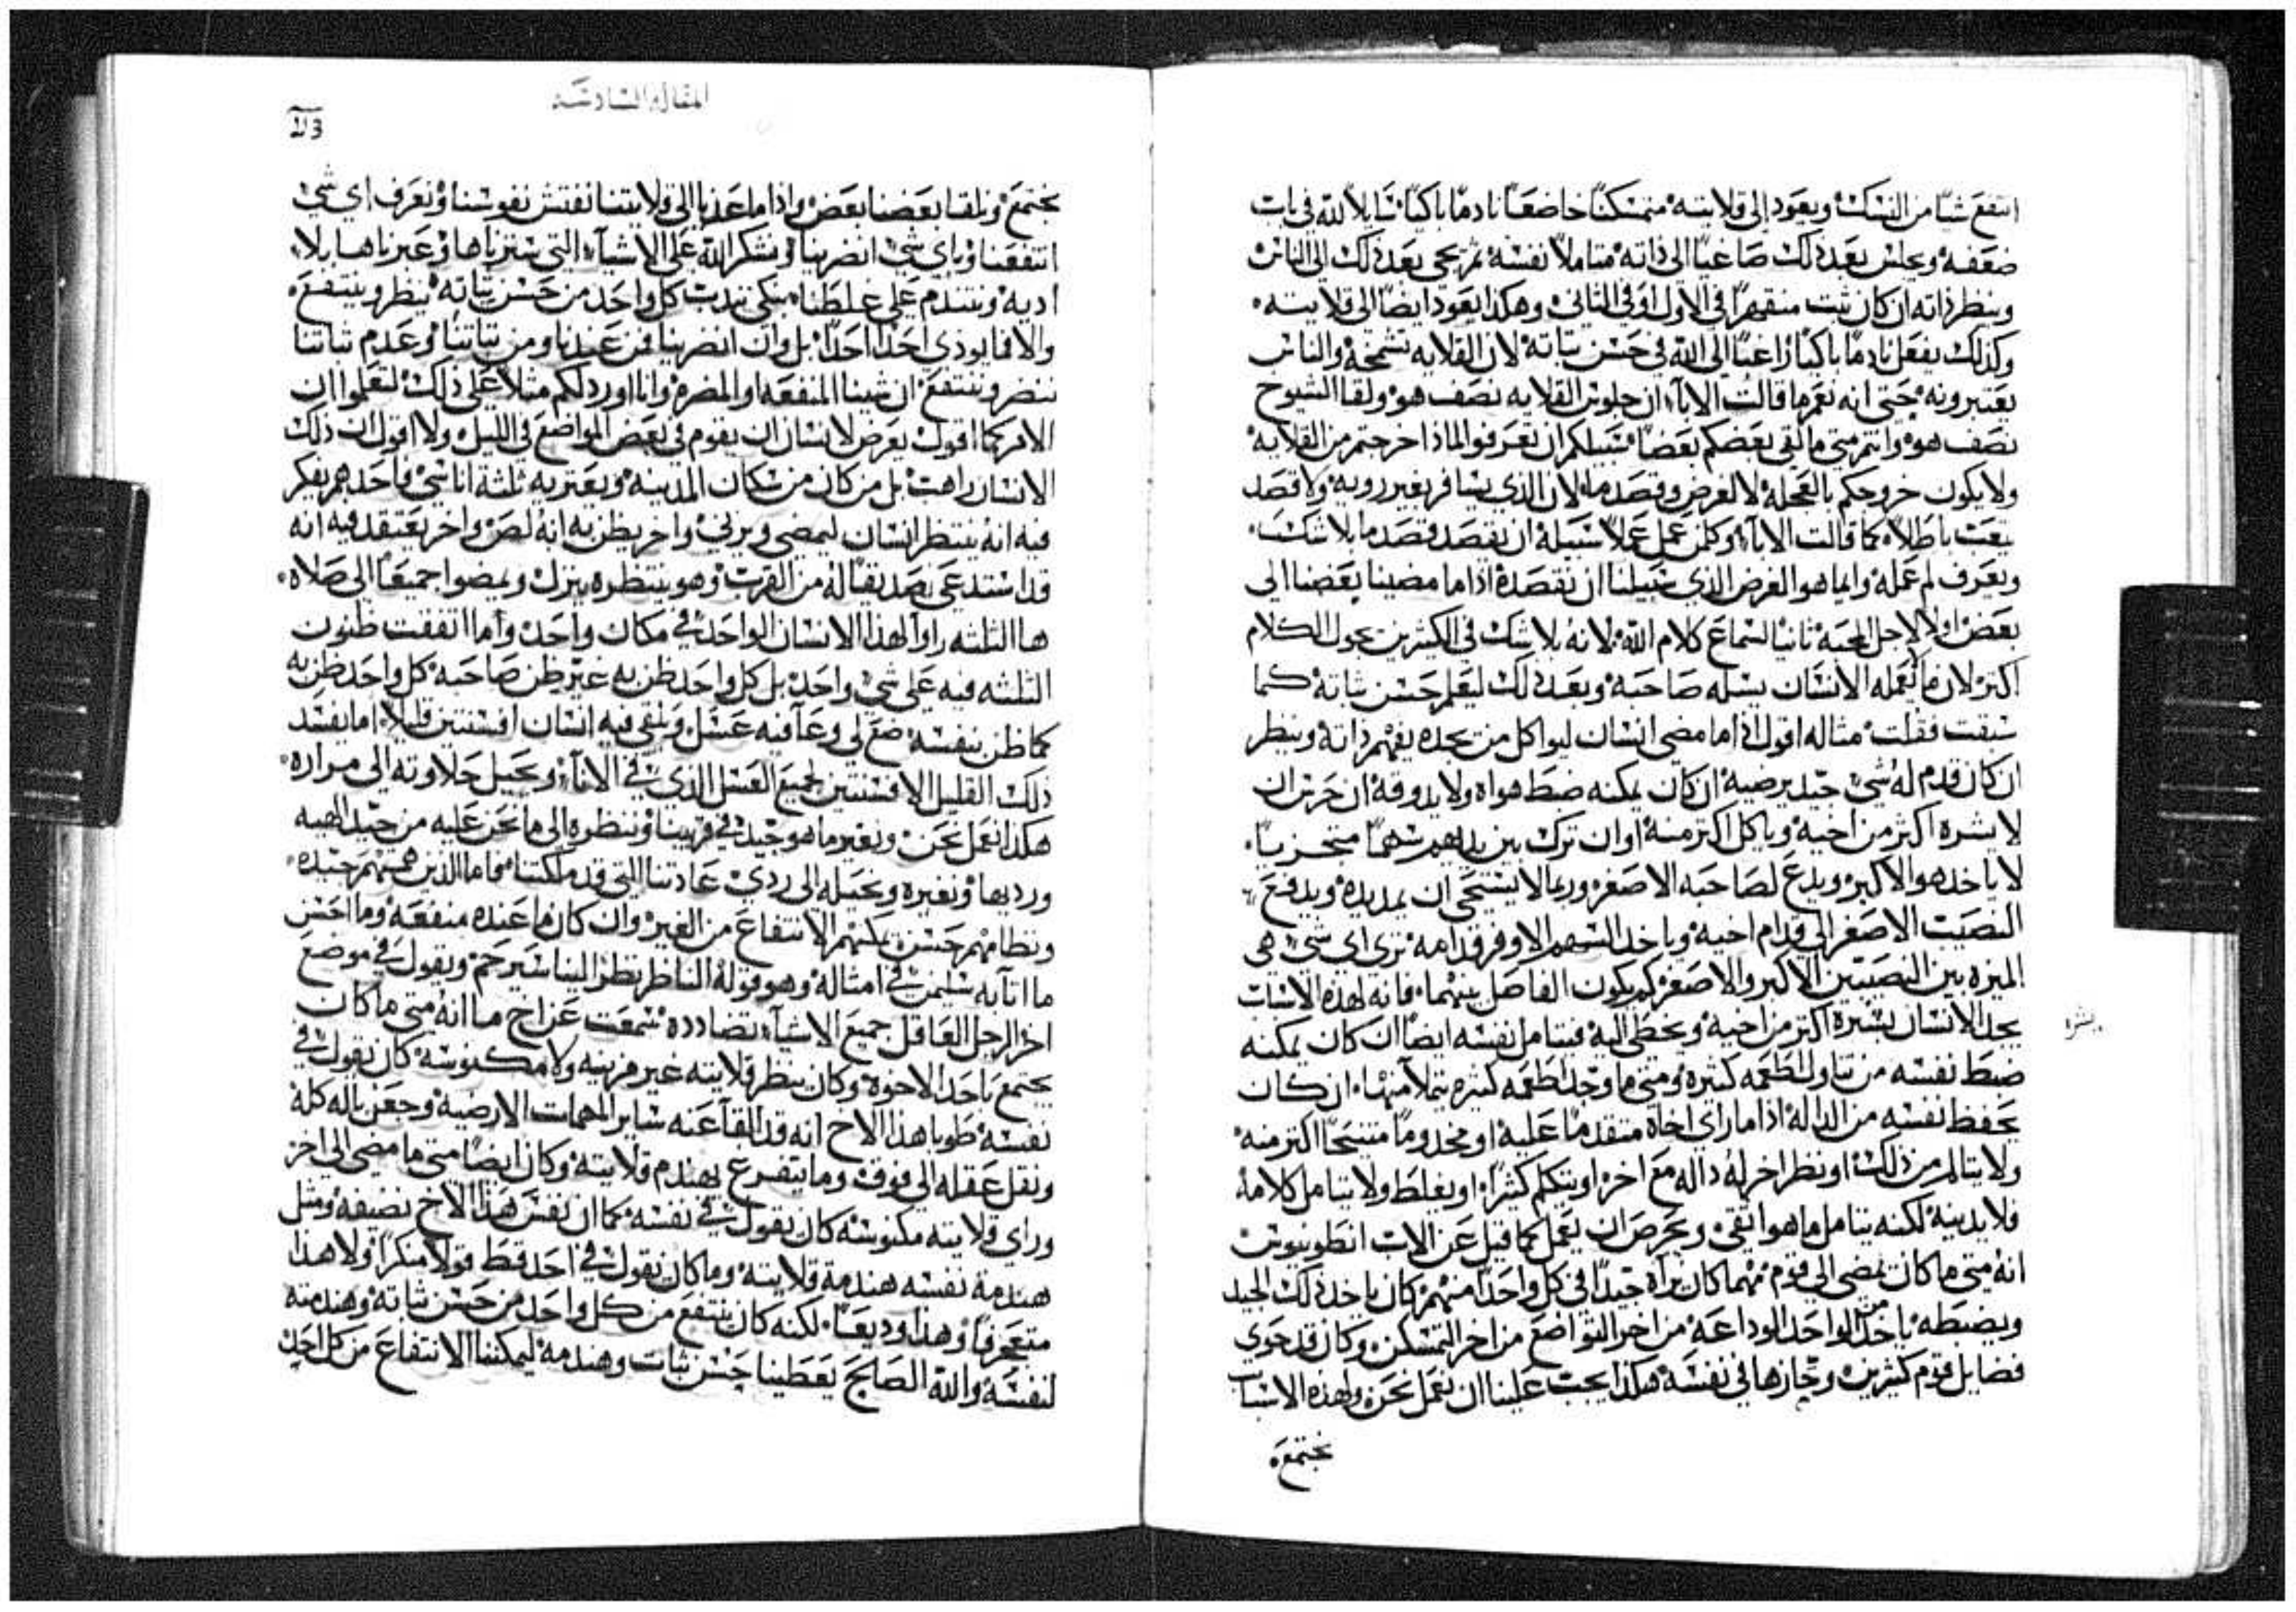 انتفع شيا من النسك ويعود الى قلايته متمسكنا خاضعا نادما باكيا سايلا لله في باب
ضعفه ويجلس بعد ذلك صاغيا الى ذاته متاملا نفسه ثم يجي بعد ذلك الى الناس
وينظر ذاته ان كان ثبت منقهرا في الاول او في الثاني وهكذا يعود ايضا الى قلايته
وكذلك يفعل نادما باكيا راغبا الى الله في حسن تباته لان القلايه تشمخه والناس
يعتبرونه حتى انه نعم ما قالت الابآء ان جلوس القلايه نصف هو ولقا الشيوخ
نصف هو وانتم متى ما لقى بعضكم بعضا سبيلكم ان تعرفوا لماذا خرجتم من القلايه
ولا يكون خروجكم بالعجله لا لغرض وقصد ما لان الذي يسافر بغير رويه ولا قصد
يتعب باطلا كما قالت الابآء وكلمن عمل عملا سبيله ان يقصد قصد ما بلا شك
ويعرف لم عمله وايما هو الغرض الذي سبيلنا ان نقصده اذا ما مضينا بعضنا الى
بعض اولا لاجل المحبه ثانيا لسماع كلام الله لانه بلا شك في الكثيرين يجول الكلام
اكثر لان ما لا يعمله الانسان يسله صاحبه وبعد ذلك ليعلم حسن ثباته كما
سبقت فقلت مثاله اقول اذا ما مضى انسان ليواكل من يجده يفهم ذاته وينظر
ان كان قدم له شي جيد يرضيه ان كان يمكنه ضبط هواه ولا يدوقه ان حرص ان
لا يشره اكثر من اخيه وياكل اكثر منه او ان ترك بين يديهم سهما متحزيا
لا ياخذ هو الاكبر ويدع لصاحبه الاصغر وربما لا يستحي ان يمد يده ويدفع
النصيب الاصغر الى قدام اخيه وياخد السهم الاوفر قدامه ترى اي شي هي
الميزه بين النصيبين الاكبر والاصغر كم يكون الفاصل بينهما فانه لهذه الاسباب
يجد الانسان يشره اكثر من اخيه ويخطى اليه فيتامل نفسه ايضا ان كان يمكنه
يشره
ضبط نفسه من تناول اطعمه كثيره ومتى ما وجد اطعمه كثيره يتملا منها ان كان
يحفظ نفسه من الداله اذا ما راى اخاه متقدما عليه او مخدوما متنيحا اكثر منه
ولا يتالم من ذلك او نظر اخر له داله مع اخر او يتكلم كثيرا او يغلط ولا يتامل كلامه
فلا يدينه لكنه يتامل ما هو انقى ويحرص ان يعمل كما قيل عن الاب انطونيوس
انه متى ما كان يمضي الى قوم مهما كان يراه جيدا في كل واحد منهم كان ياخد ذلك الجيد
ويضبطه ياخد من الواحد الوداعه من اخر التواضع من اخر التمسكن وكان قد حوى
فضايل قوم كثيرين وحازها في نفسه هكذا يجب علينا ان نعمل نحن ولهذه الاسباب
نجتمع
المقاله السادسه
نجتمع ونلقا بعضنا بعض واذا ما عدنا الى قلايتنا نفتش نفوسنا ونعرف اي شي
انتفعنا وباي شي انضرينا ونشكر الله على الاشيآء التي سترناها وعبرناها بلا
اديه ونتندم على غلطنا نبكي نندب كل واحد من حسن تباته ينظر وينتفع
والا فما يوذي احدا احدا بل وان انضرينا فمن عندنا ومن تباتنا وعدم ثباتنا
ننضر وننتفع ان شينا المنفعه او المضره وانا اورد لكم مثلا على ذلك لتعلموا ان
الامر كما اقول يعرض لانسان ان يقوم في بعض المواضع في الليل ولا اقول ان ذلك
الانسان راهب بل من كان من سكان المدينه ويعتريه ثلثة اناسي فاحدهم يفكر
فيه انه ينتظر انسان ليمضي ويزني واخر يظن به انه لص واخر يعتقد فيه انه
قد استدعى صديقا له من القرب وهو ينتظره ينزل ويمضوا جميعا الى صلاه
ها الثلثه راوا لهذا الانسان الواحد في مكان واحد وأما اتفقت ظنون
الثلثه فيه على شي واحد بل كل واحد ظن به غير ظن صاحبه كل واحد ظن به
كما ظن بنفسه ضع لي وعآ فيه عسل ويلقي فيه انسان افسنتين قليلا اما يفسد
ذلك القليل الافسنتين لجميع العسل الذي في الانآء ويحيل حلاوته الى مراره
هكذا نعمل نحن ونغير ما هو جيد في قريبنا وننظره الى ما نحن عليه من
ورديها ونغيره ونحيله الى ردي عادتنا التي قد ملكتنا فاما الذين همتهم جيده
ونظامهم حسن يمكنهم الانتفاع من الغير وان كان ما عنده منفعه وما احسن
ما اتا به سليمن في امثاله وهو قوله الناظر نظرا لينا سيرحم ويقول في موضع
اخر الرجل العاقل جميع الاشيآء تضادده سمعت عن اخ ما انه متى ما كان
يجتمع باحد الاخوه وكان ينظر قلايته غير مزينه ولا مكنوسه كان يقول في
نفسه طوبا هذا الاخ انه قد القآ عنه ساير المهمات الارضيه وجعل باله كله
ونقل عقله الى فوق وما يتفرغ يهندم قلايته وكان ايضا متى ما مضى الى اخر
وراى قلايته مكنوسه كان يقول في نفسه كما ان نفس هذا الاخ نضيفه ومثل
هندمة نفسه هندمة قلايته وما كان يقول في احد قط قولا منكرا ولا هذا
متعجرفا وهذا وديعا لكنه كان ينتفع من كل واحد من حسن ثباته وهندمته
لنفسه والله الصالح يعطينا حسن ثبات وهندمه ليمكننا الانتفاع من كل احد